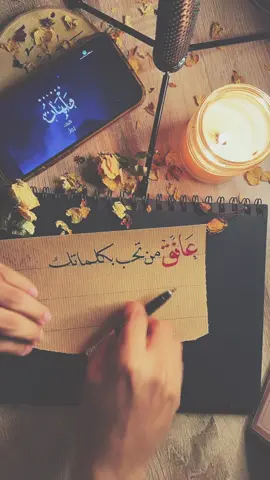 عَانِقْ من تحب بكلماتك